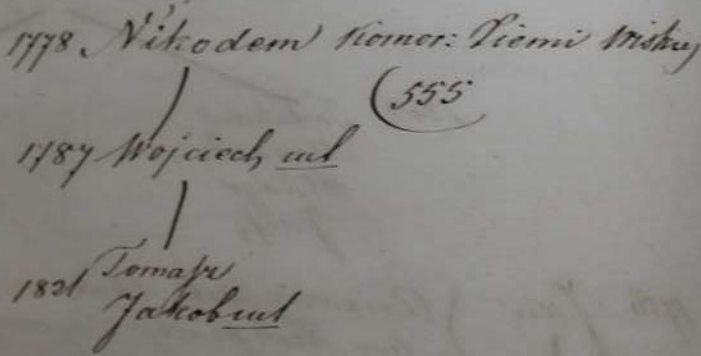 1778 Nikodem Komor: Ziemi Wiskiej
(555
1787 Wojciech ur
1821 Tomasz
Jakob ur